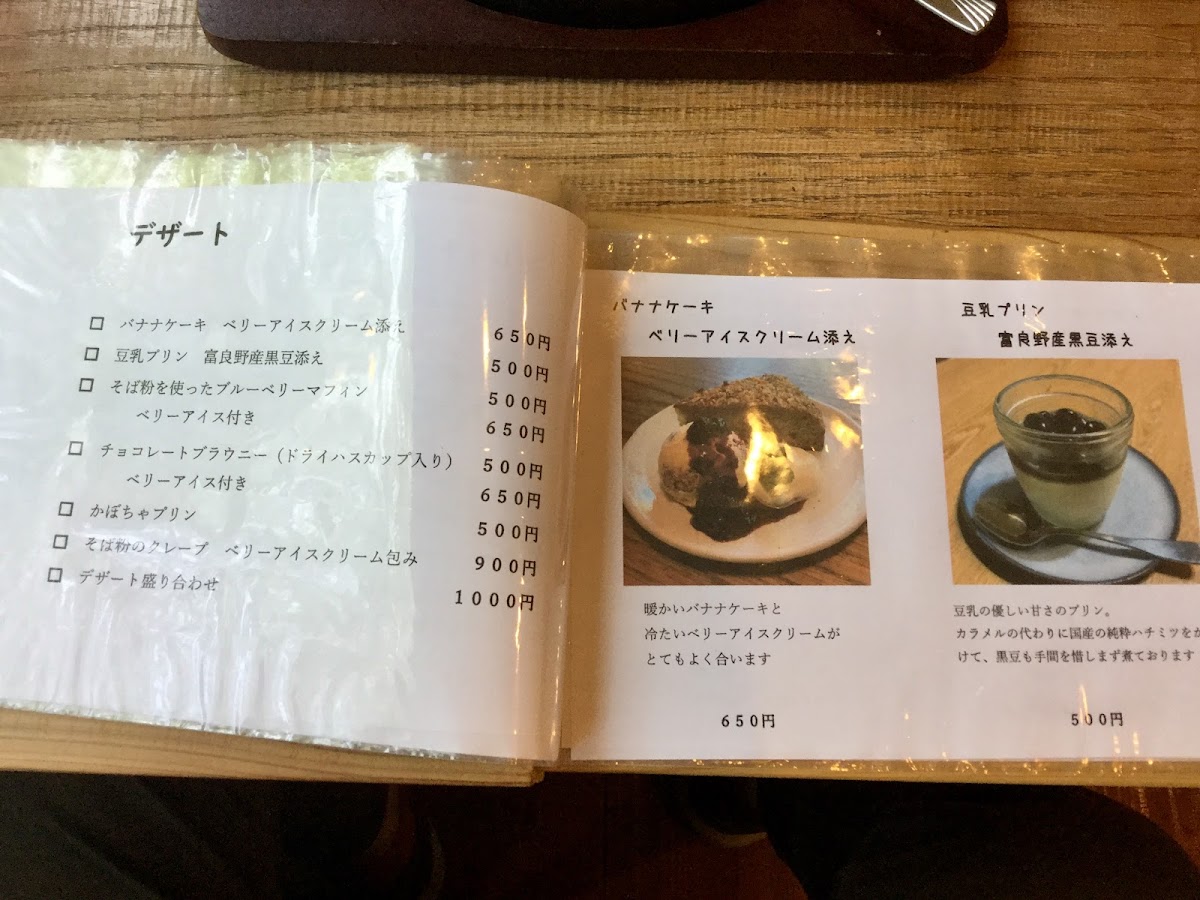 デザート
□ バナナケーキ ベリーアイスクリーム添え 650円
□ 豆乳プリン 富良野産黒豆添え 500円
□ そば粉を使ったブルーベリーマフィン 500円
ベリーアイス付き 650円
□ チョコレートブラウニー（ドライハスカップ入り） 500円
ベリーアイス付き 650円
□ かぼちゃプリン 500円
□ そば粉のクレープ ベリーアイスクリーム包み 900円
□ デザート盛り合わせ 1000円
バナナケーキ
ベリーアイスクリーム添え
暖かいバナナケーキと
冷たいベリーアイスクリームが
とてもよく合います
650円
豆乳プリン
富良野産黒豆添え
豆乳の優しい甘さのプリン。
カラメルの代わりに国産の純粋ハチミツをか
けて、黒豆も手間を惜しまず煮ております
500円